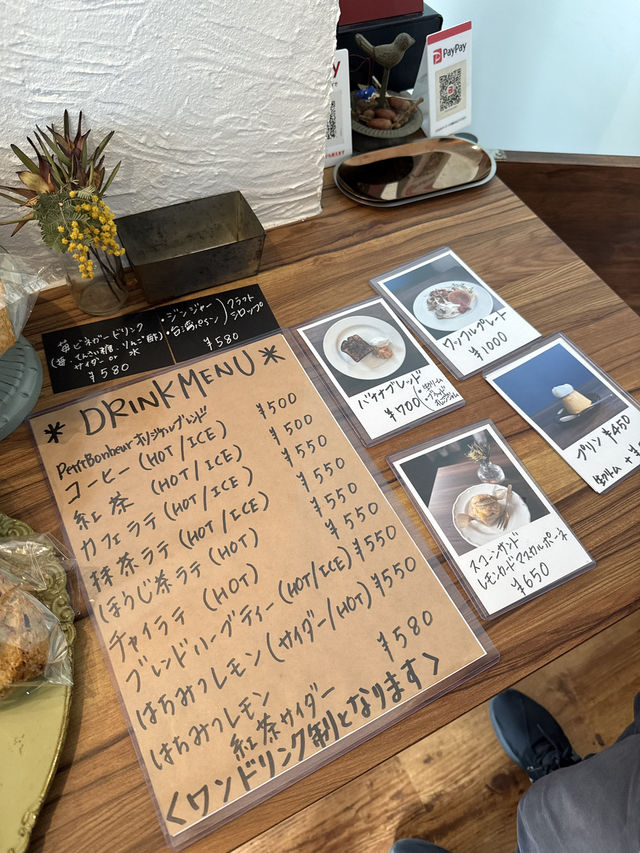 PayPay
苺ビネガードリンク
(苺・てんさい糖・りんご酢)
サイダー or 水
¥580
・ジンジャー
・台湾パイン
クラフト
シロップ
¥580
* DRINK MENU *
Petit Bonheur オリジナルブレンド
コーヒー (HOT/ICE) ¥500
紅茶 (HOT/ICE) ¥500
カフェラテ (HOT/ICE) ¥550
抹茶ラテ (HOT/ICE) ¥550
ほうじ茶ラテ (HOT) ¥550
チャイラテ (HOT) ¥550
ブレンドハーブティー (HOT/ICE) ¥550
はちみつレモン (サイダー/HOT) ¥550
はちみつレモン
紅茶サイダー ¥580
<ワンドリンク制となります>
ワッフルプレート
¥1000
バナナブレッド
¥700
・生クリーム
プリン ¥450
生クリーム +¥
スコーンサンド
レモンカードマスカルポーネ
¥650